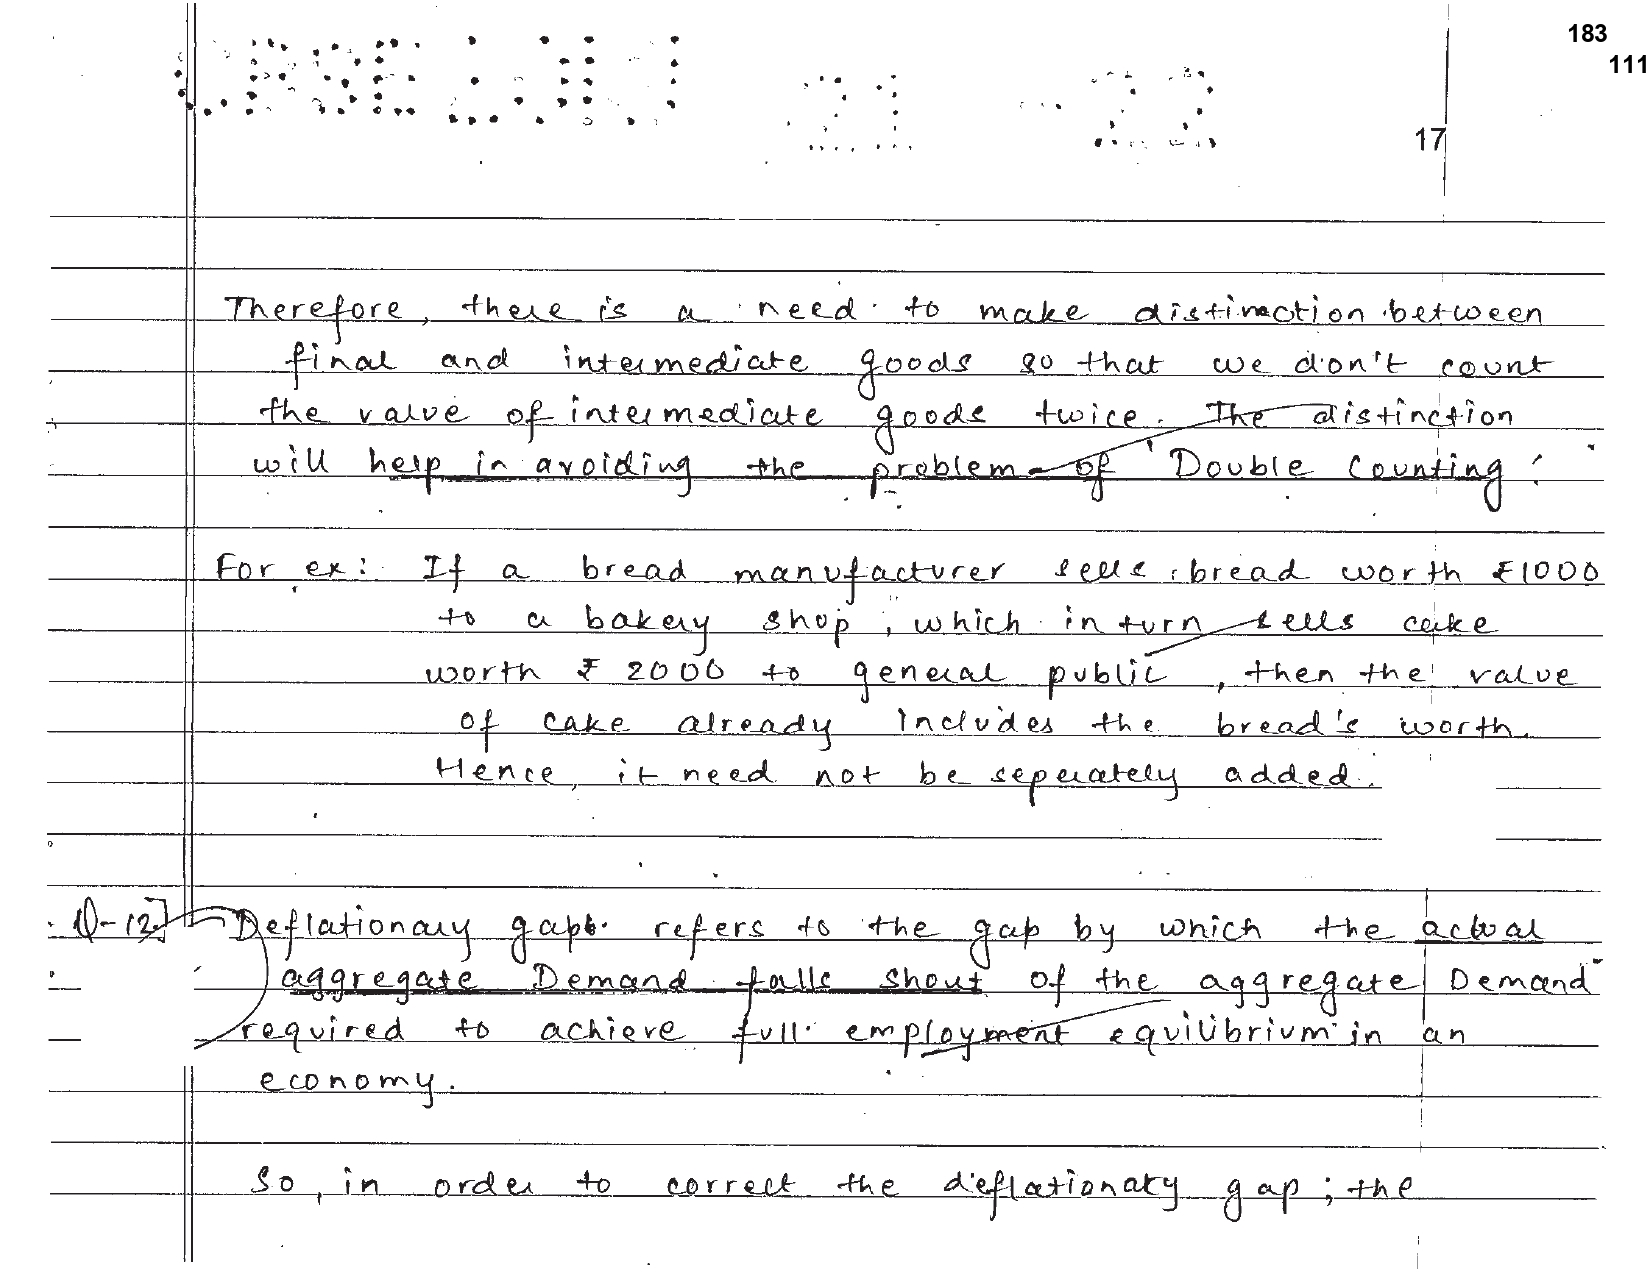 183
111
CBSE DELHI 21 - 22
17
Therefore, there is a need to make distinction between
final and intermediate goods so that we don't count
the value of intermediate goods twice. The distinction
will help in avoiding the problem of 'Double Counting'.
For ex: If a bread manufacturer sells bread worth ₹1000
to a bakery shop, which in turn sells cake
worth ₹ 2000 to general public, then the value
of cake already includes the bread's worth.
Hence, it need not be seperately added.
Q-12] Deflationary gap refers to the gap by which the actual
aggregate Demand falls short of the aggregate Demand
required to achieve full employment equilibrium in an
economy.
So, in order to correct the deflationary gap; the